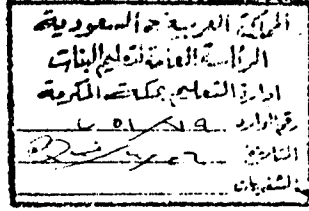 المملكة العربية السعودية
الرئاسة العامة لتعليم البنات
إدارة التعليم بمكة المكرمة
رقم الوارد
التاريخ
المشفوعات